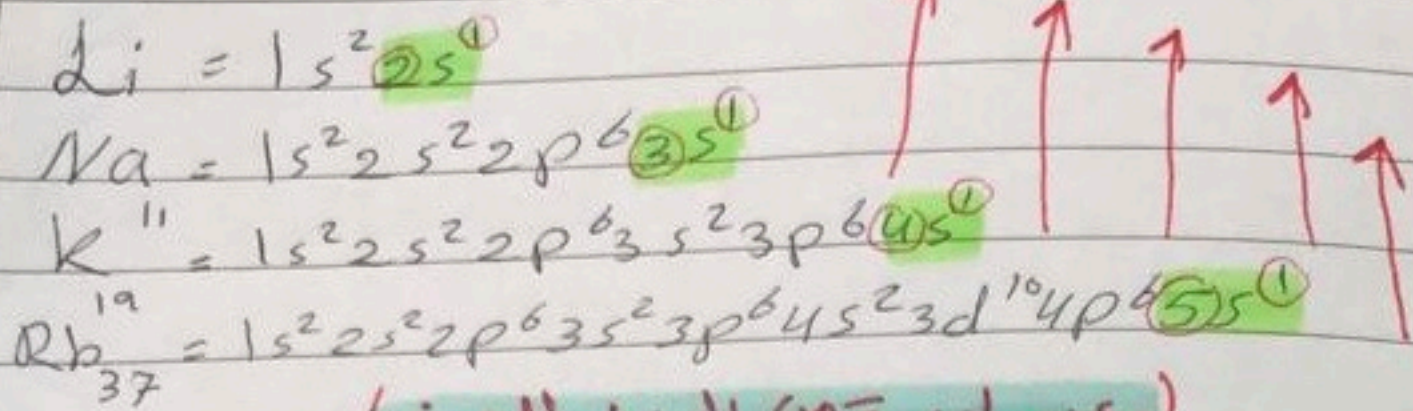 Li = 1s² 2s¹
Na = 1s² 2s² 2p⁶ 3s¹
11
K = 1s² 2s² 2p⁶ 3s² 3p⁶ 4s¹
19
Rb = 1s² 2s² 2p⁶ 3s² 3p⁶ 4s² 3d¹⁰ 4p⁶ 5s¹
37